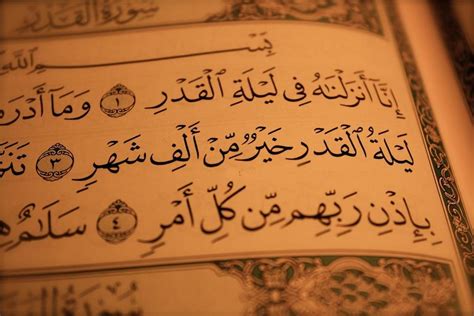 سُورَةُ القَدْرِ
بِسْمِ اللَّهِ
إِنَّآ أَنزَلْنَٰهُ فِى لَيْلَةِ ٱلْقَدْرِ ١ وَمَآ أَدْرَ
لَيْلَةُ ٱلْقَدْرِ خَيْرٌ مِّنْ أَلْفِ شَهْرٍ ٣ تَنَزَّ
بِإِذْنِ رَبِّهِم مِّن كُلِّ أَمْرٍ ٤ سَلَٰمٌ هِ
سُورَةُ